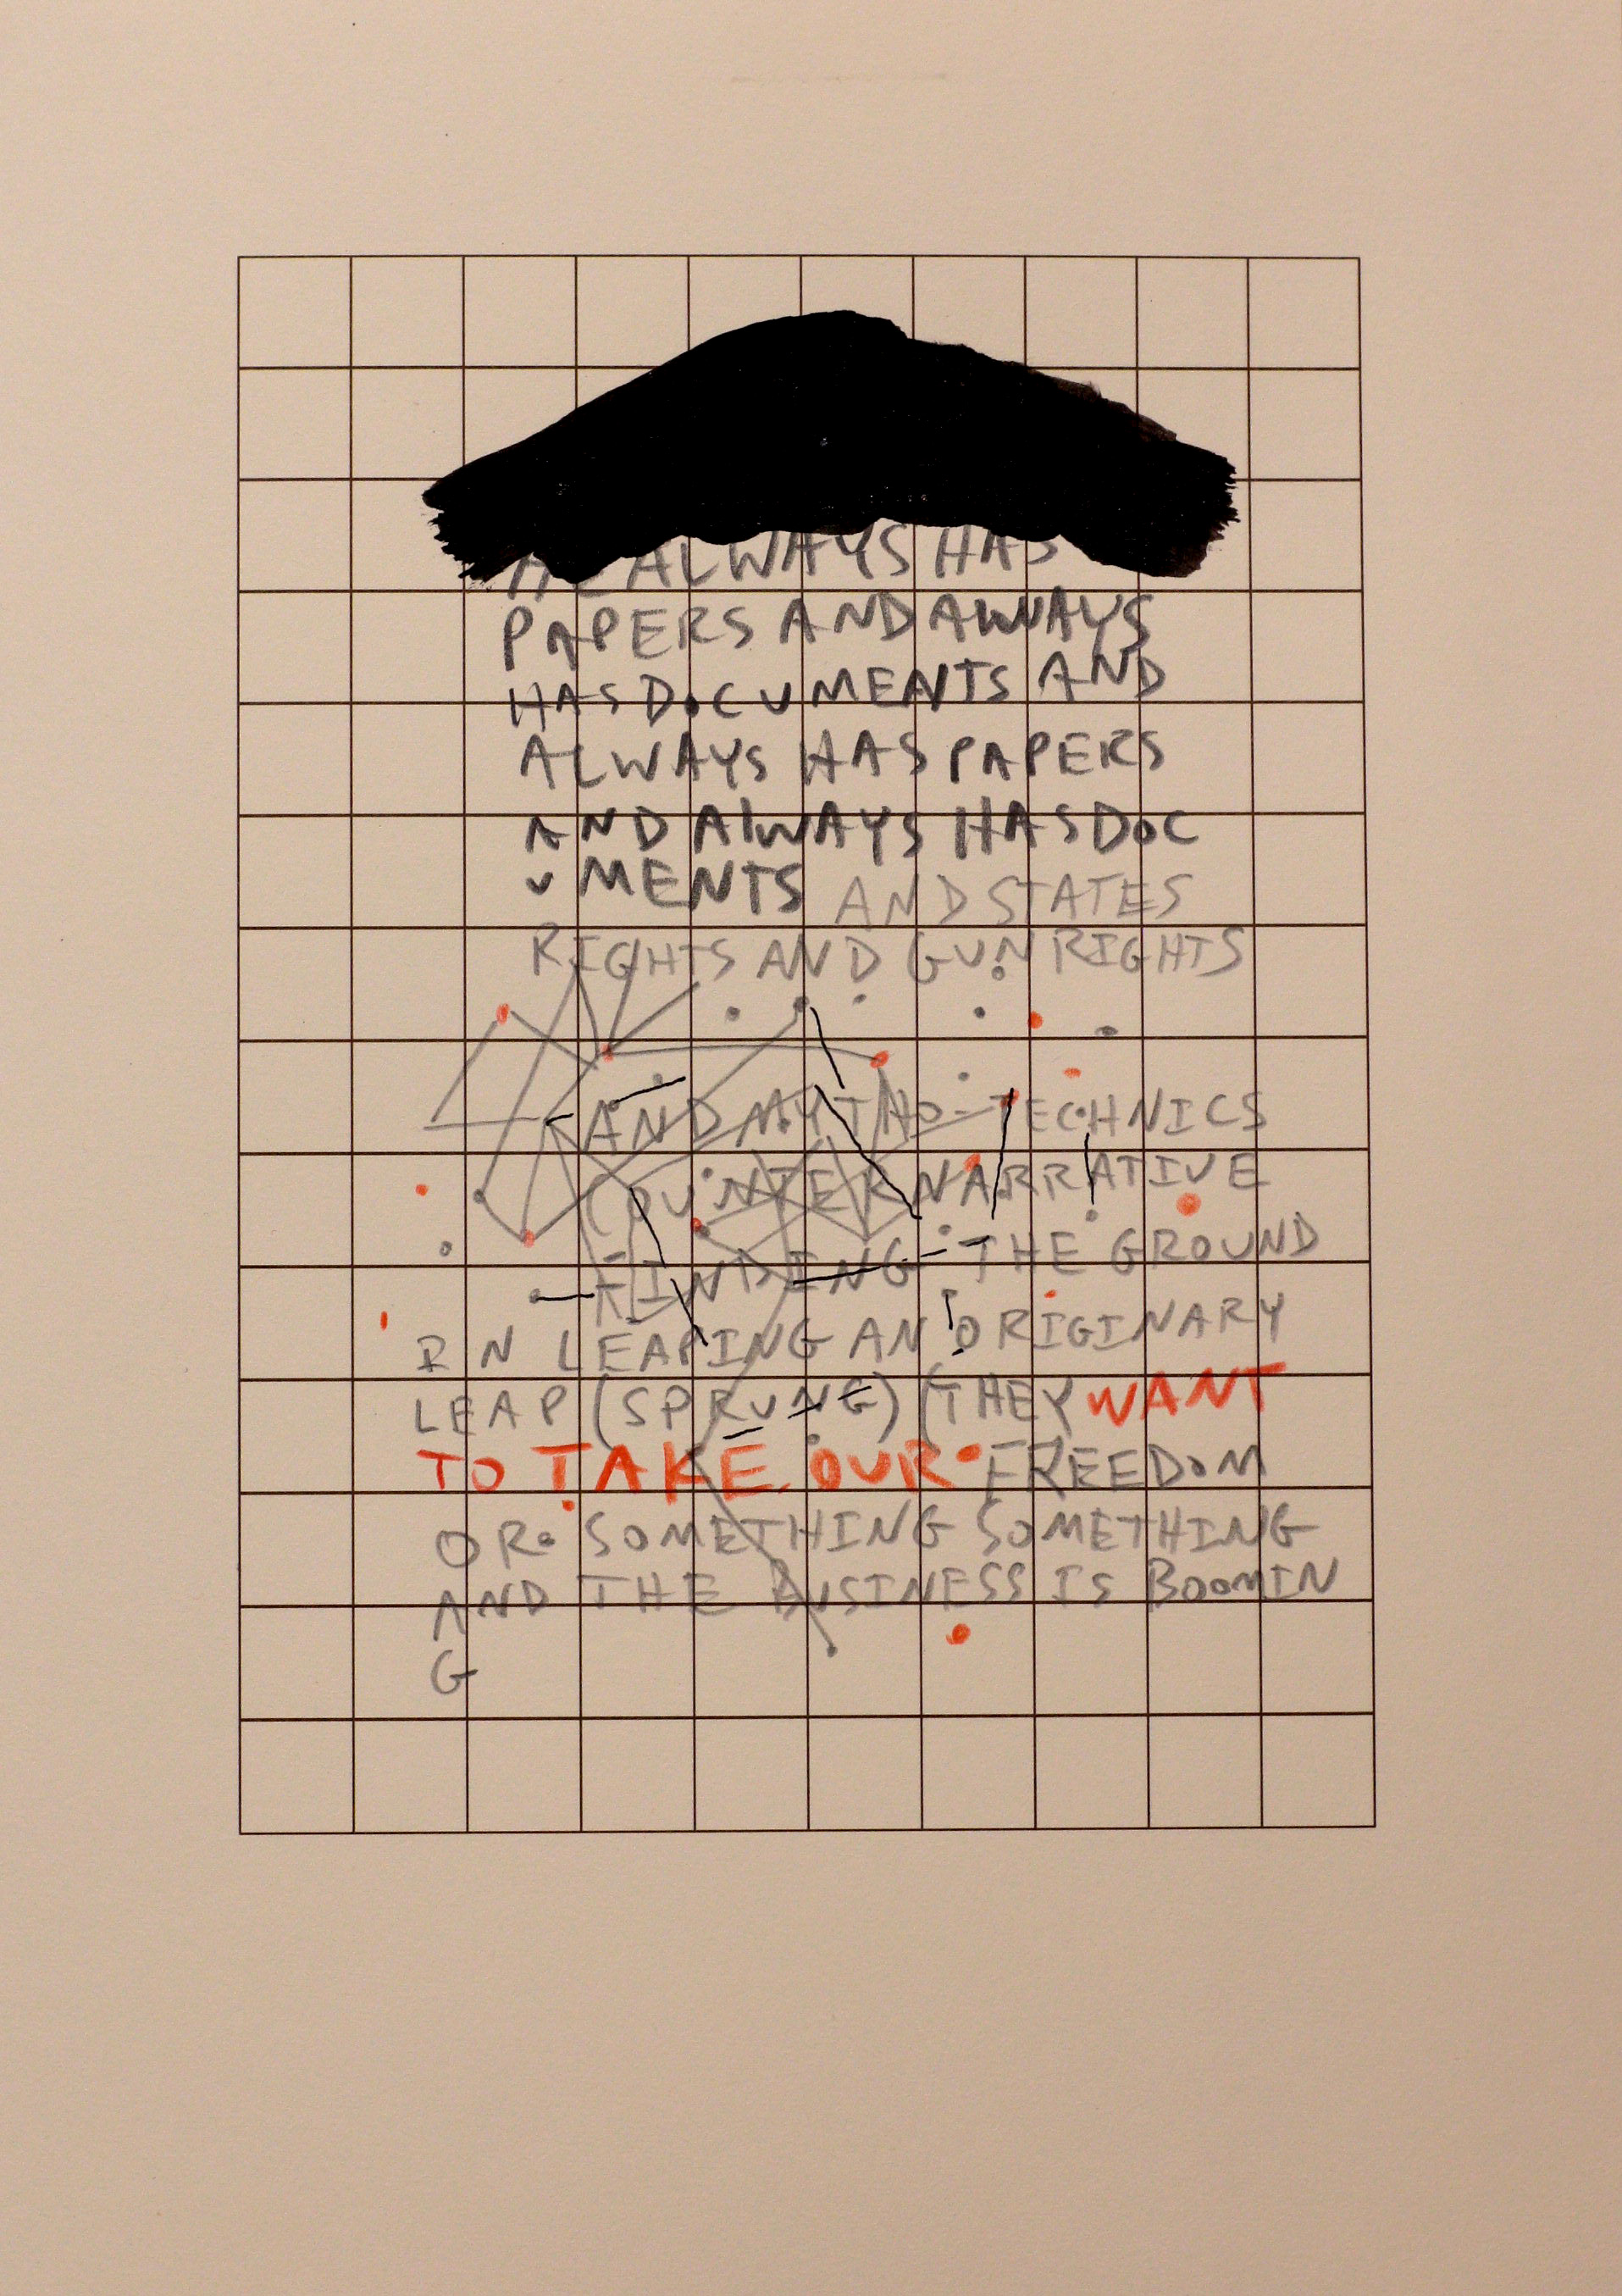 HE ALWAYS HAS
PAPERS AND ALWAYS
HAS DOCUMENTS AND
ALWAYS HAS PAPERS
AND ALWAYS HAS DOC
UMENTS AND STATES
RIGHTS AND GUN RIGHTS
AND MYTHO-TECHNICS
COUNTER NARRATIVE
FINDING THE GROUND
IN LEAPING AN ORIGINARY
LEAP (SPRUNG) (THEY WANT
TO TAKE OUR FREEDOM
OR SOMETHING SOMETHING
AND THE BUSINESS IS BOOMIN
G